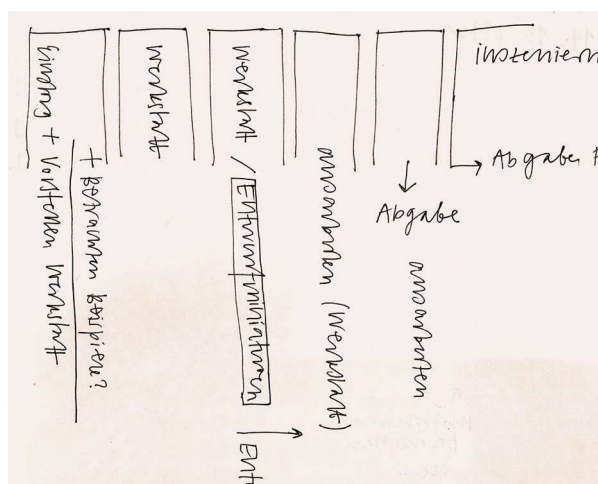 Einstieg + Vorstellen Werkstatt
+ Betrachten Beispiele?
Werkstatt
Werkstatt / Entwurfminiaturen
Ent
ausarbeiten (Werkstatt)
→ Abgabe
ausarbeiten
inszeniern
→ Abgabe